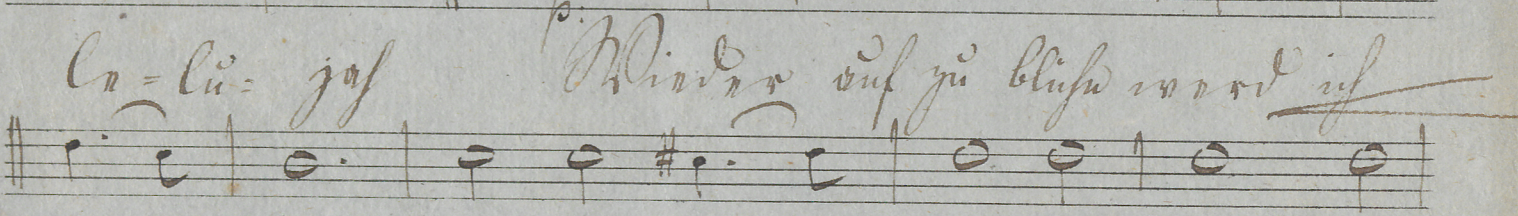 p.
le-lu-jah Wieder auf zu blühn werd ich